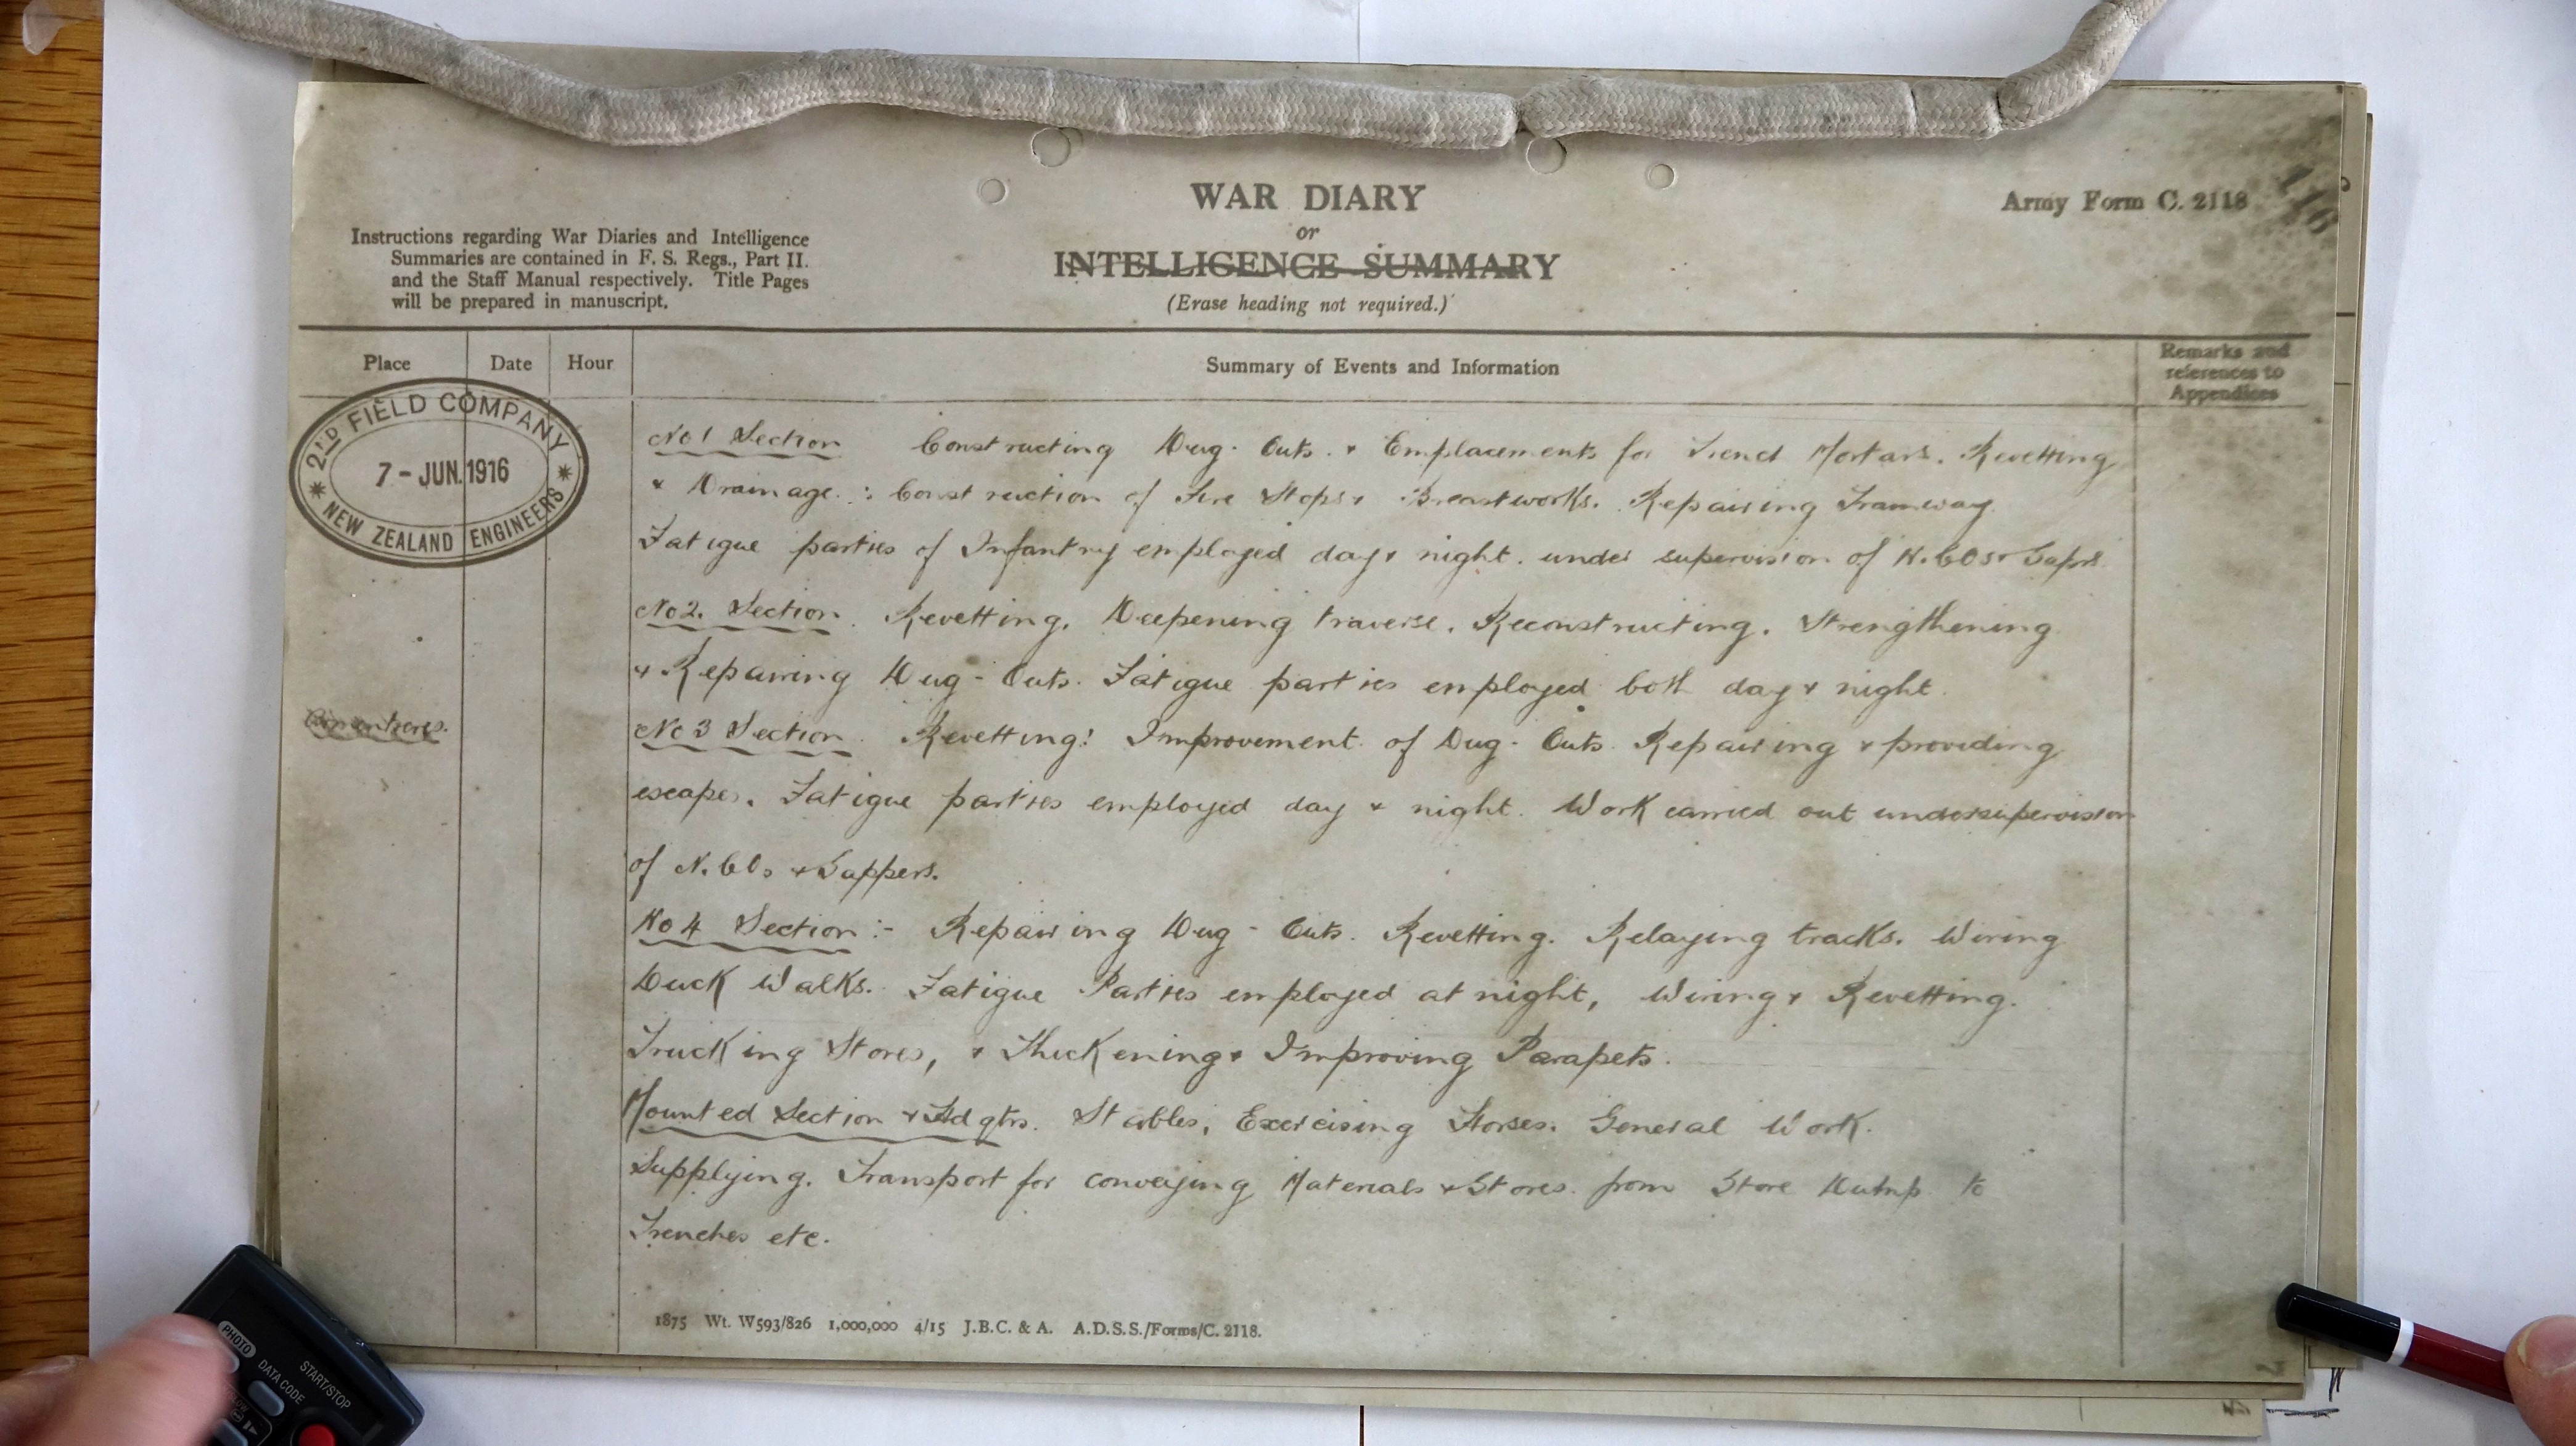 WAR DIARY
or
INTELLIGENCE SUMMARY
(Erase heading not required.)
Army Form C. 2118
Instructions regarding War Diaries and Intelligence
Summaries are contained in F. S. Regs., Part II.
and the Staff Manual respectively. Title Pages
will be prepared in manuscript.
Place Date Hour Summary of Events and Information
Remarks and
references to
Appendices
2ND FIELD COMPANY
7 - JUN. 1916
NEW ZEALAND ENGINEERS
No 1 Section Constructing Dug-Outs. & Emplacements for Trench Mortars. Revetting
& Drainage. : Construction of Fire Stops & Breastworks. Repairing Tramway.
Fatigue parties of Infantry employed day & night. under supervision of N.COs & Saprs
No 2. Section. Revetting. Deepening traverse. Reconstructing. Strengthening
& Repairing Dug-Outs. Fatigue parties employed both day & night.
Armentieres.
No 3 Section. Revetting! Improvement of Dug-Outs. Repairing & providing
escapes. Fatigue parties employed day & night. Work carried out under supervision
of N.COs & Sappers.
No 4 Section :- Repairing Dug-Outs. Revetting. Relaying tracks. Wiring
Duck Walks. Fatigue Parties employed at night, Wiring & Revetting.
Trucking Stores, & Thickening & Improving Parapets.
Mounted Section & Hdqtrs. Stables, Exercising Horses. General Work.
Supplying. Transport for conveying Materials & Stores from Store Dump to
Trenches etc.
1875 Wt. W593/826 1,000,000 4/15 J.B.C. & A. A.D.S.S./Forms/C. 2118.
PHOTO
DATA CODE
START/STOP